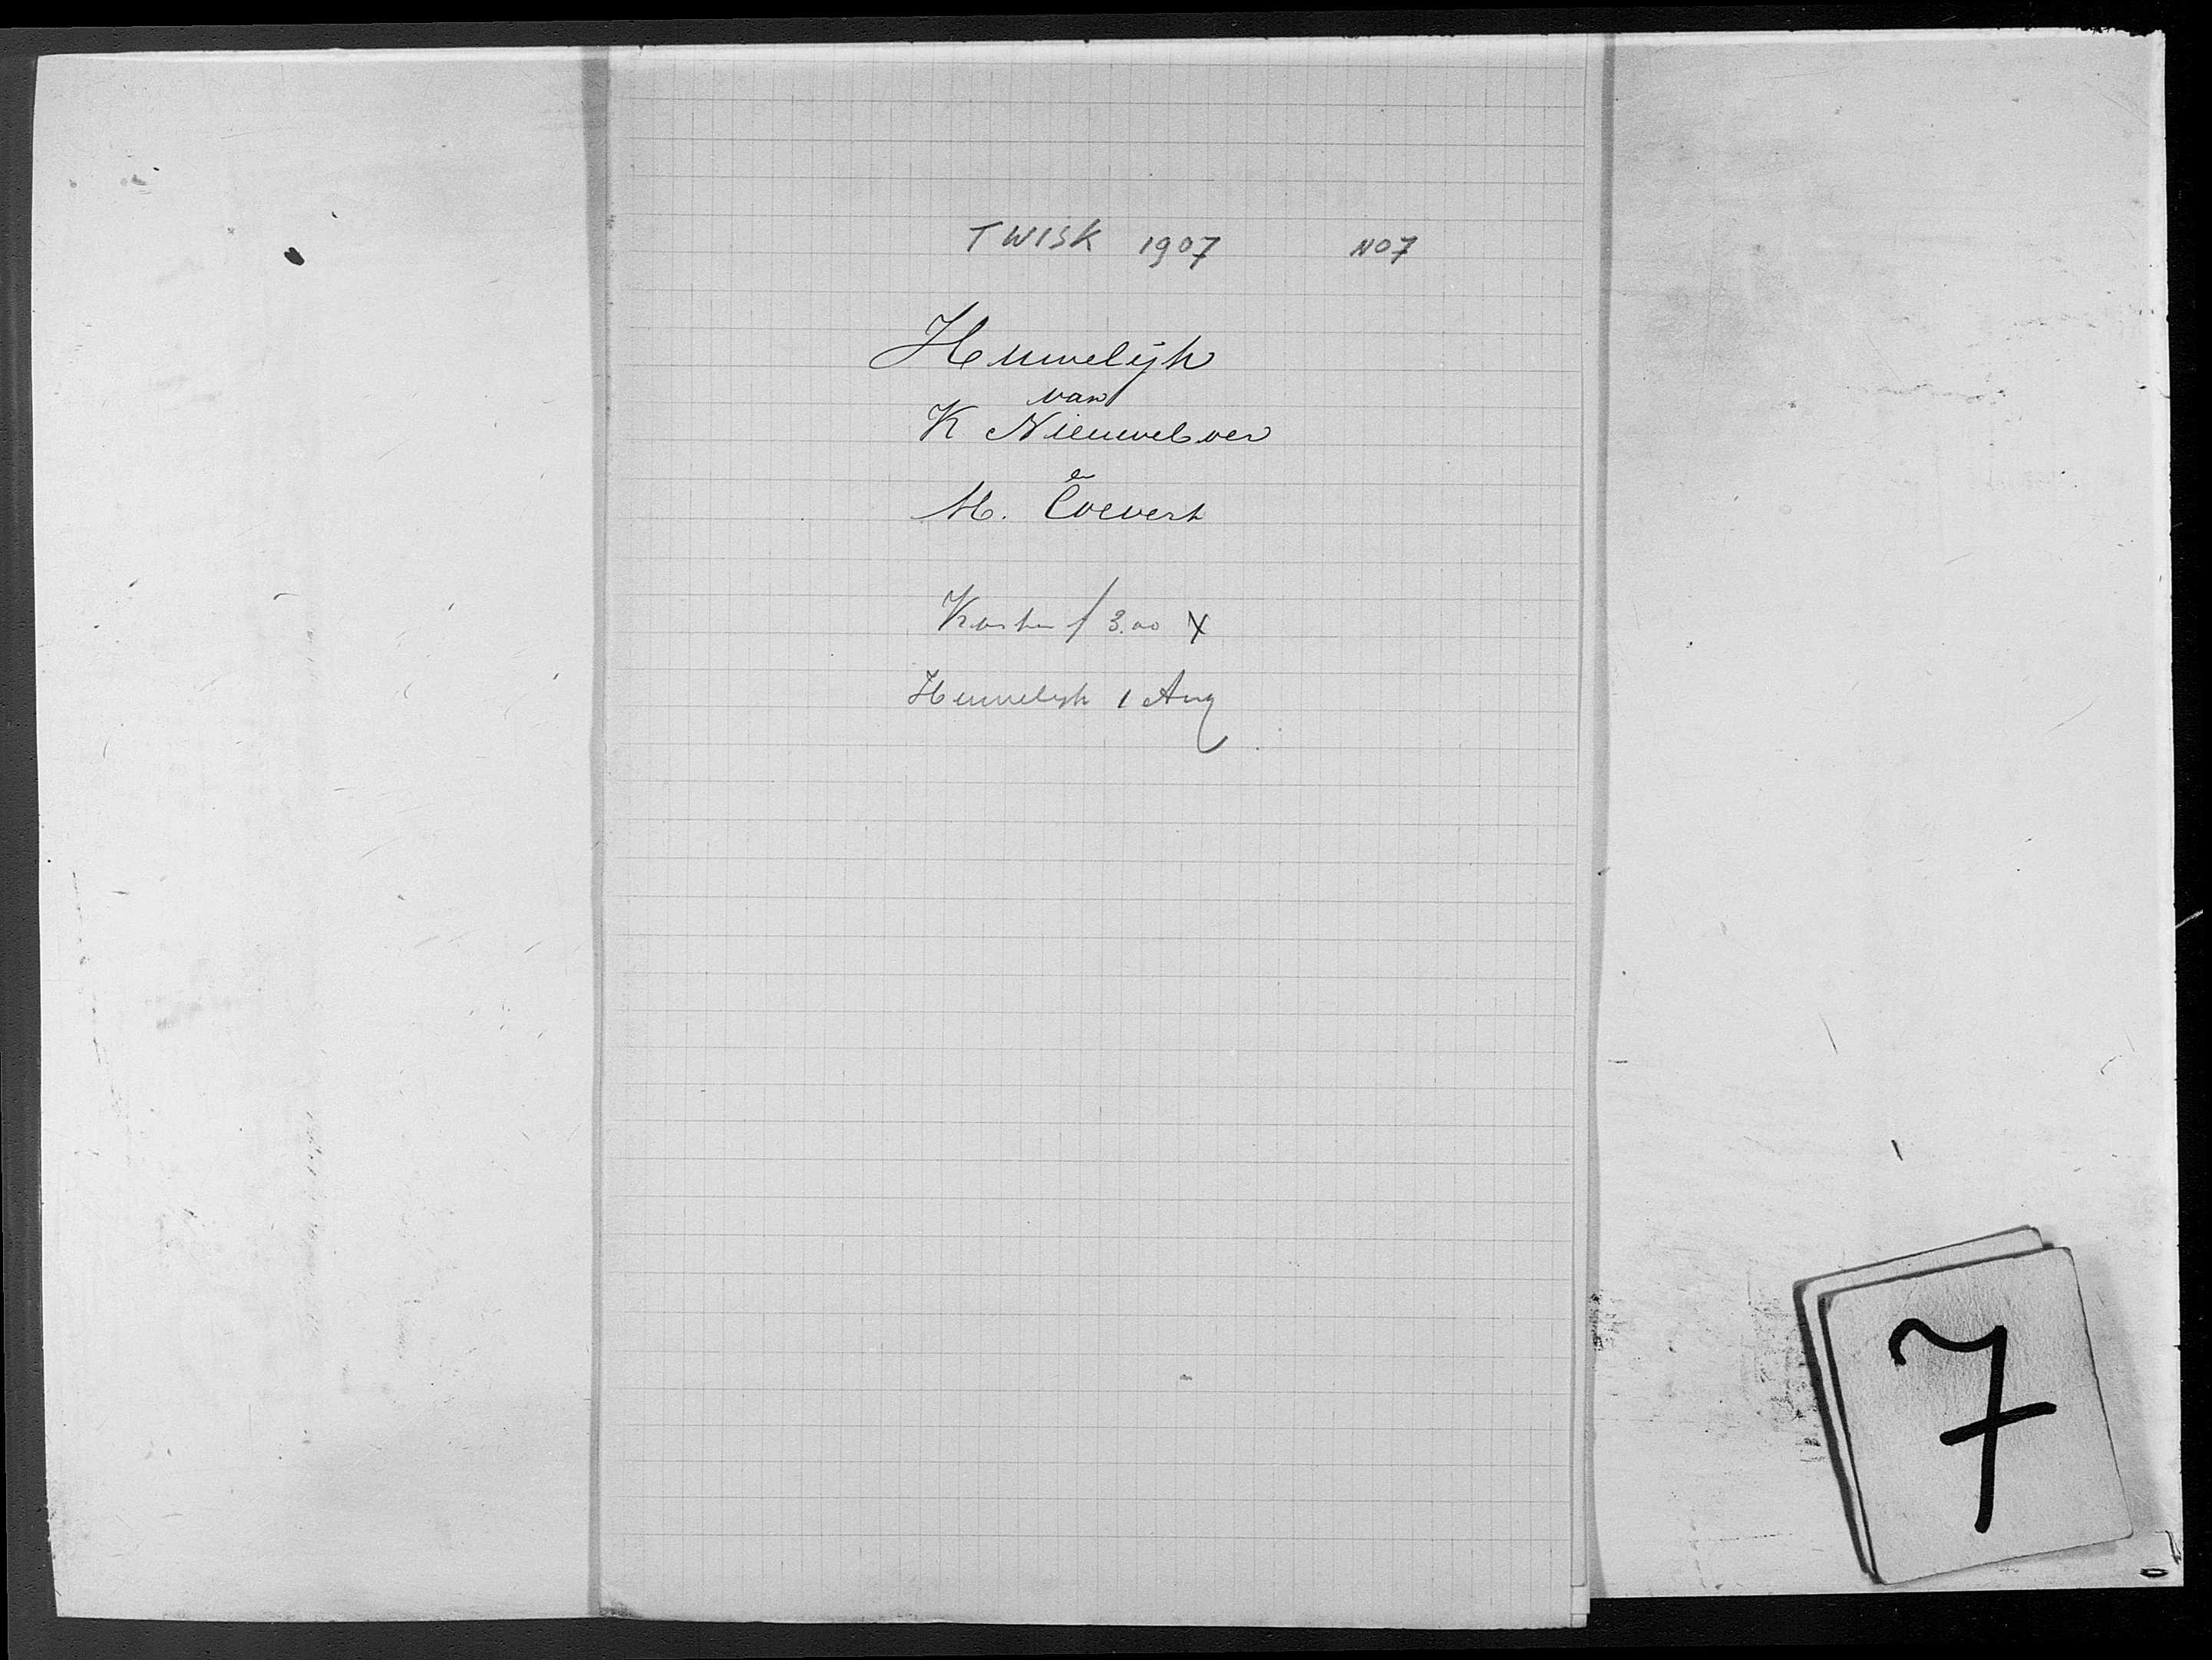 TWISK 1907 NO7
Huwelijk
van
K Nieuweboer
en
M. Coevert
Kosten f 3.00 X
Huwelijk 1 Aug
7